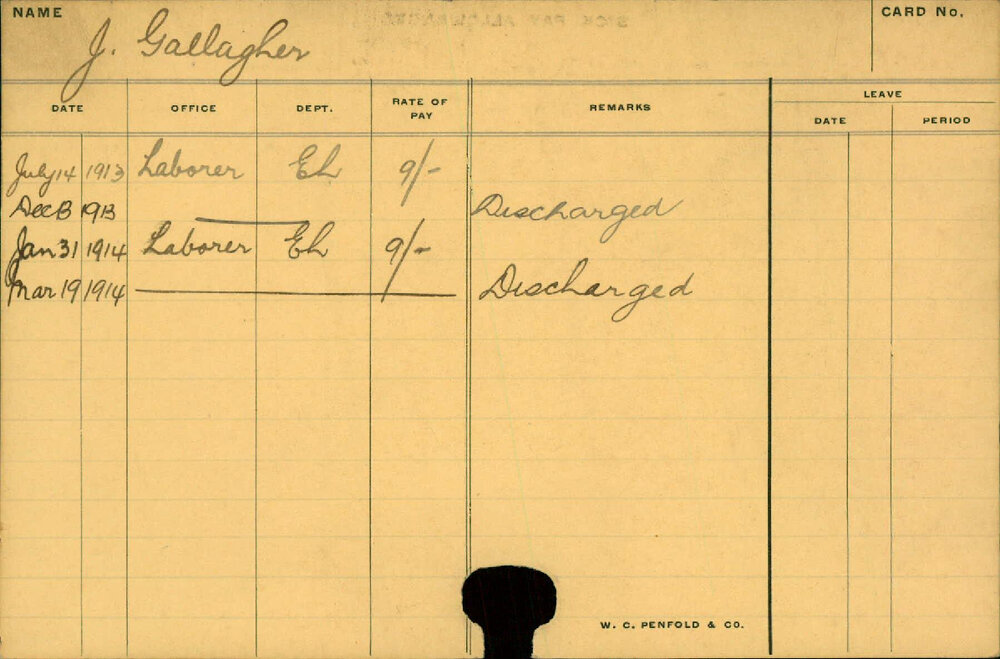 NAME
CARD No.
J. Gallagher
DATE OFFICE DEPT. RATE OF PAY REMARKS LEAVE
DATE PERIOD
July 14 1913 Laborer EL 9/-
Dec 13 1913 Discharged
Jan 31 1914 Laborer EL 9/-
Mar 19 1914 Discharged
W. C. PENFOLD & CO.